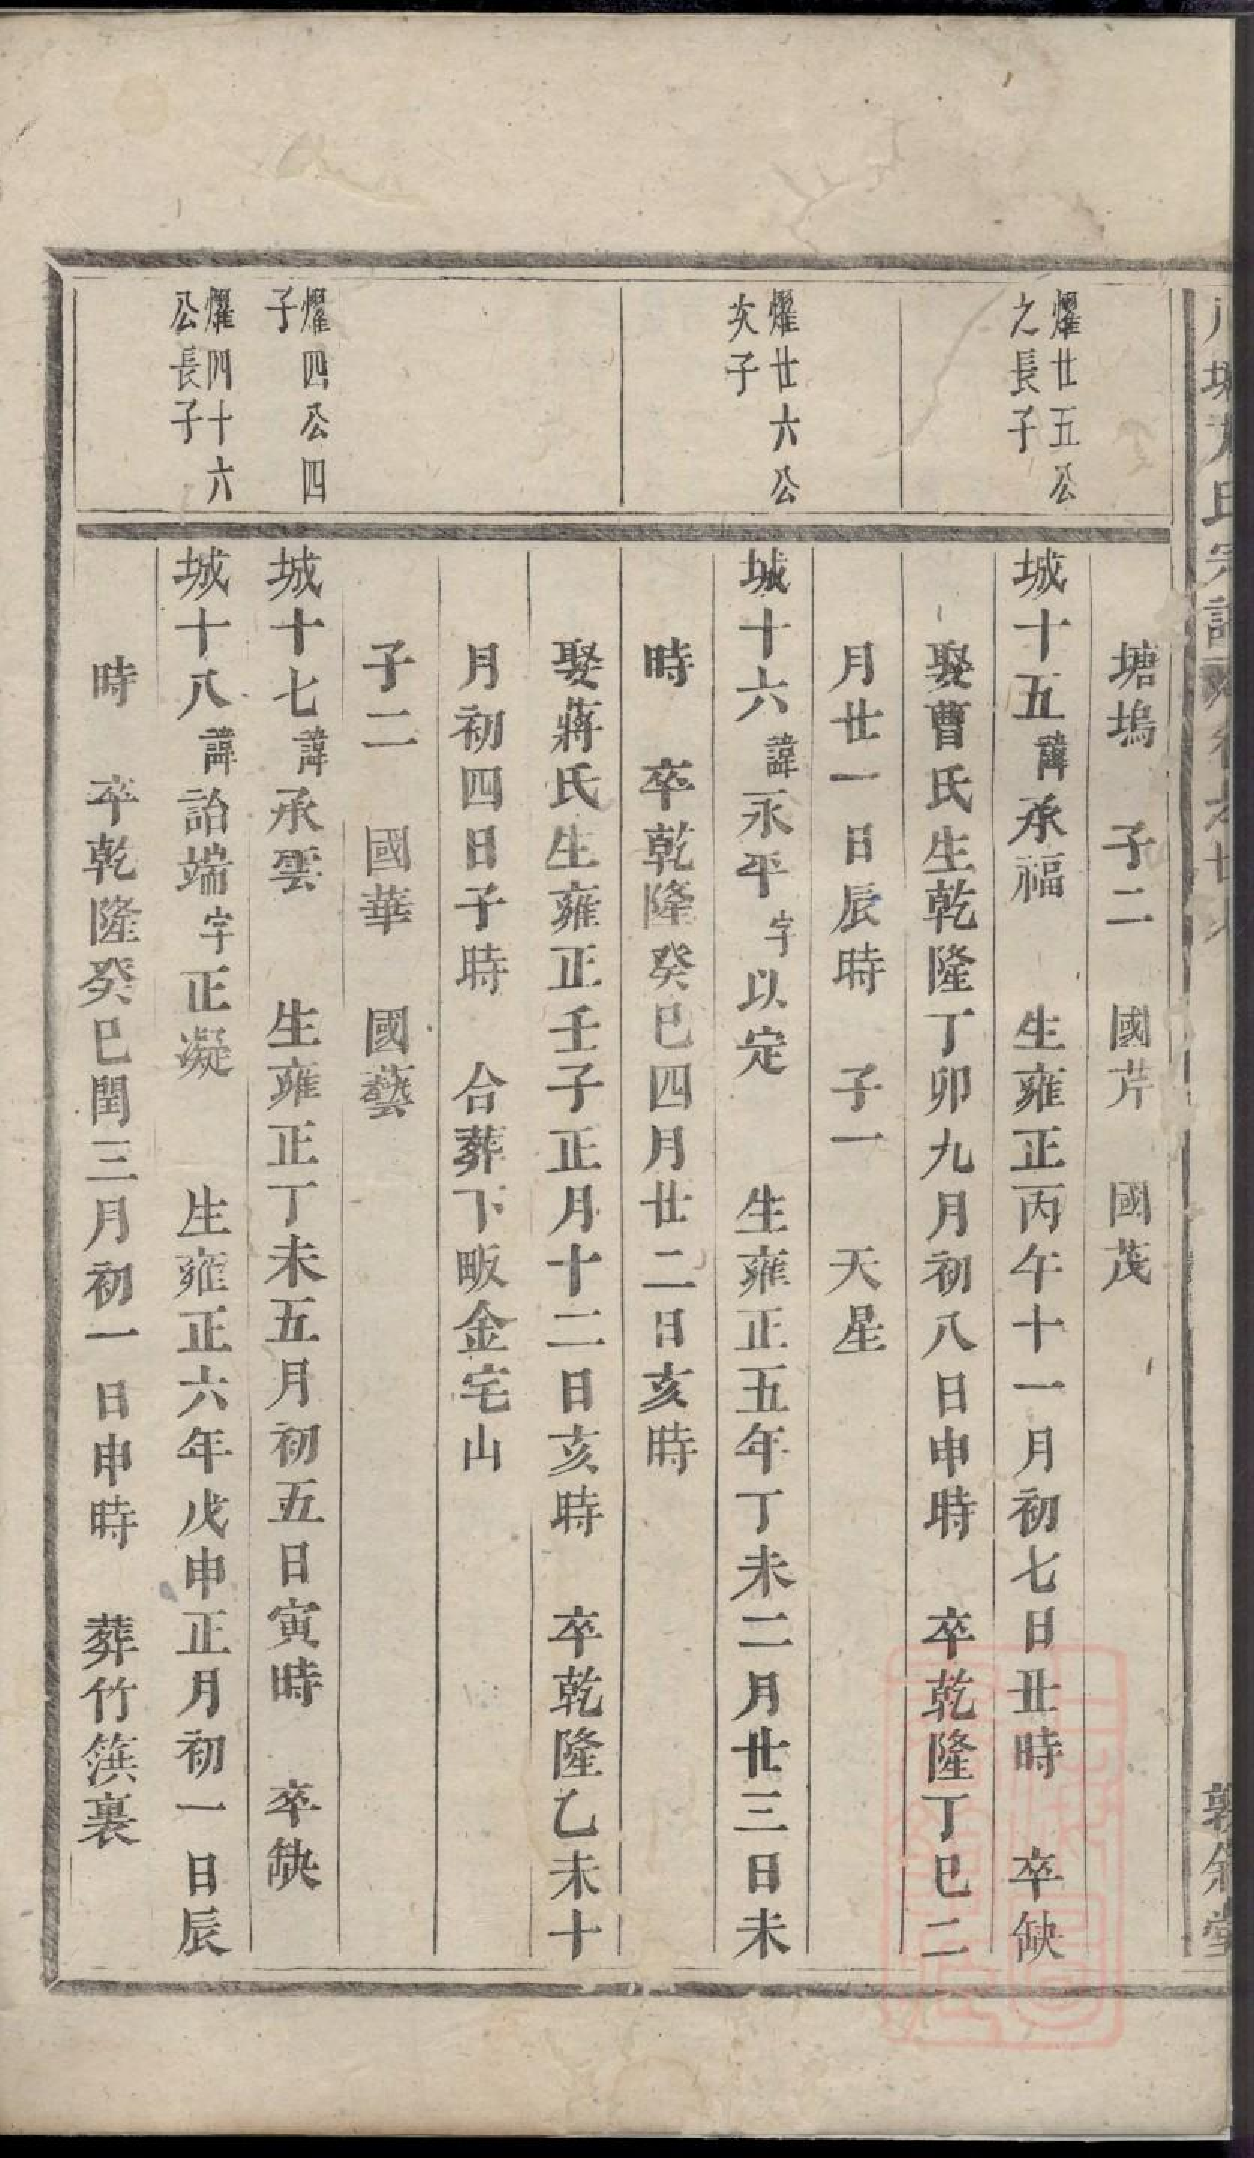 塘塢　子二　國芹　國茂
燿廿五公
之長子
城十五諱承福　生雍正丙午十一月初七日丑時　卒缺
娶曹氏生乾隆丁卯九月初八日申時　卒乾隆丁巳二
月廿一日辰時　子一　天星
燿廿六公
次子
城十六諱永平字以定　生雍正五年丁未二月廿三日未
時　卒乾隆癸巳四月廿二日亥時
娶蔣氏生雍正壬子正月十二日亥時　卒乾隆乙未十
月初四日子時　合葬下畈金宅山
子二　國華　國藝
燿四公四
子
城十七諱承雲　生雍正丁未五月初五日寅時　卒缺
燿四十六
公長子
城十八諱詒端字正凝　生雍正六年戊申正月初一日辰
時　卒乾隆癸巳閏三月初一日申時　葬竹篊裏